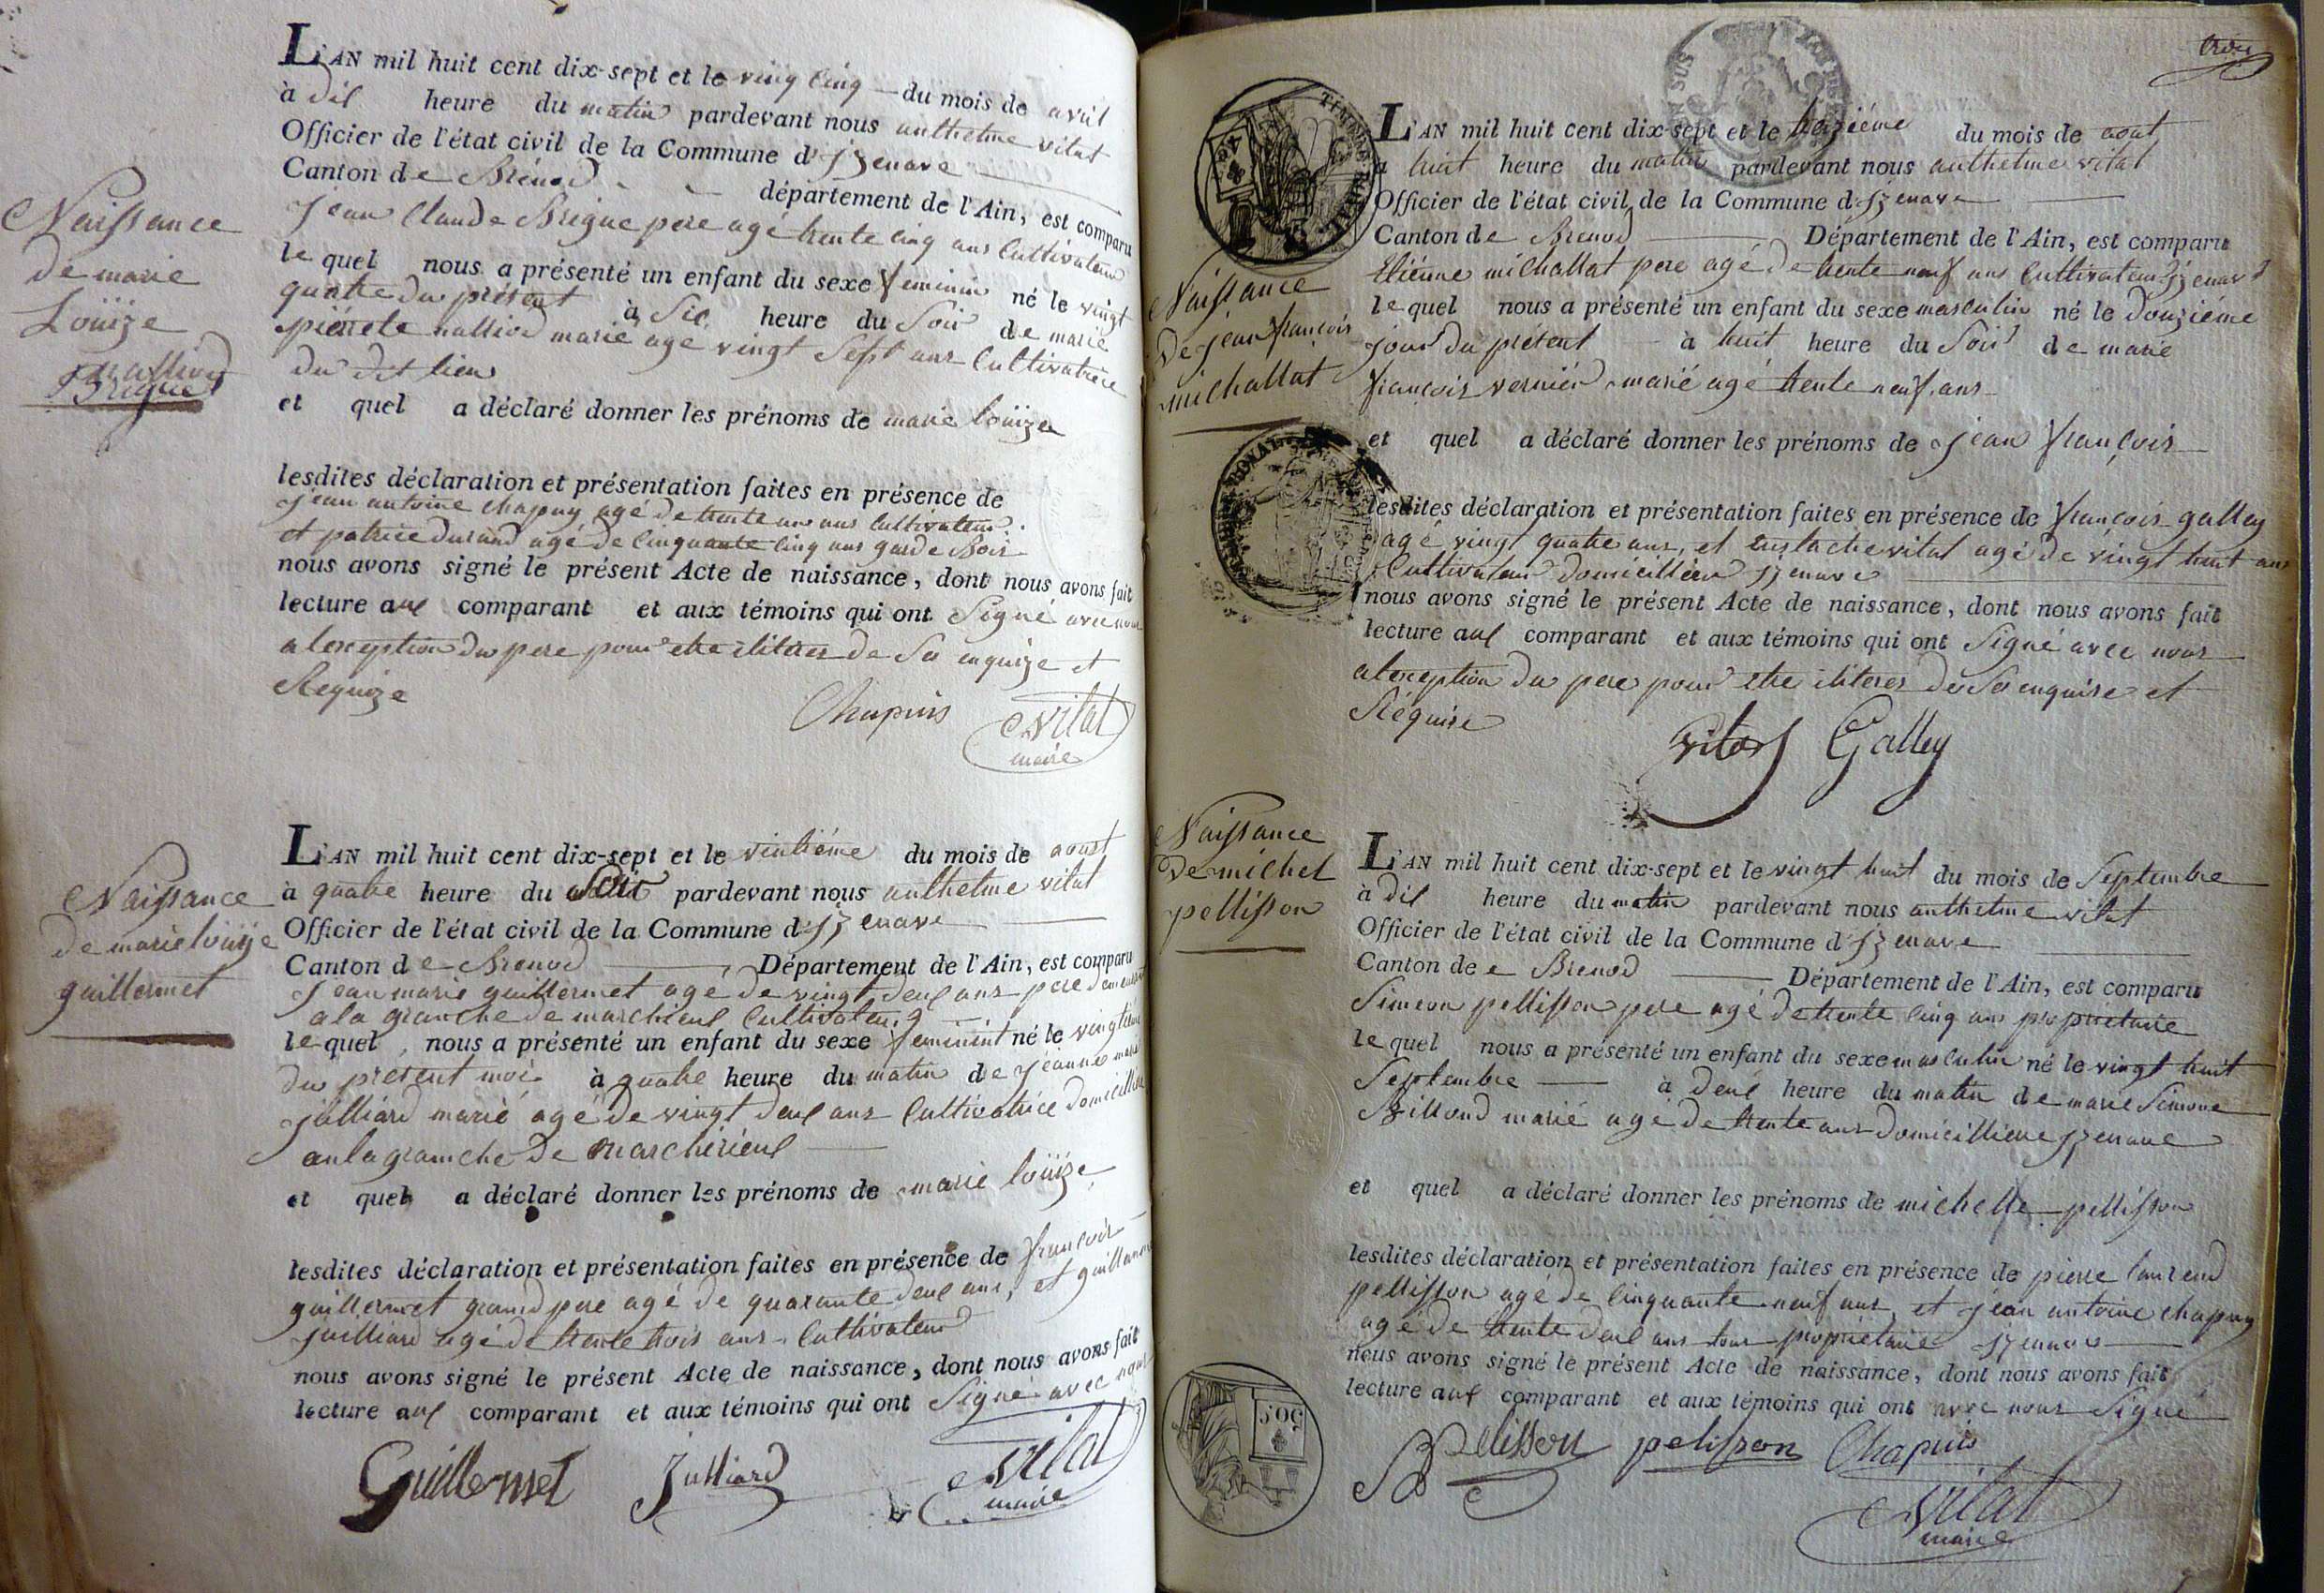 Naissance
de marie
Louïze
nallied
Brigue
L'AN mil huit cent dix-sept et le ving cinq du mois de avril
à dix heure du matin pardevant nous anthelme vital
Officier de l'état civil de la Commune d'izenave
Canton de Brénod département de l'Ain, est comparu
jean Claude Brigue pere agé trente cinq ans Cultivateur
le quel nous a présenté un enfant du sexe feminin né le vingt
quatre du présent à Six heure du Soir de marie
pierrete nallied marié agé vingt Sept ans Cultivatrice
du dit lieu
et quel a déclaré donner les prénoms de marie louïze
lesdites déclaration et présentation faites en présence de
jean antoine chapuy agé de trente un ans Cultivateur
et patrice durand agé de Cinquante cinq ans garde Bois
nous avons signé le présent Acte de naissance, dont nous avons fait
lecture aux comparant et aux témoins qui ont Signé avec nous
a lexception du pere pour etre iliteres de Se enquize et
Requize
Chapuis vital
maire
Naissance
de marie louïze
guillermet
L'AN mil huit cent dix-sept et le vintiéme du mois de aoust
à quatre heure du Soir pardevant nous anthelme vital
Officier de l'état civil de la Commune d'izenave
Canton de Brenod Département de l'Ain, est comparu
jean marie guillermet agé de vingt deux ans pere demeurant
a la granche de marchieux Cultivateur
le quel nous a présenté un enfant du sexe feminint né le vingtiéme
du présent moi à quatre heure du matin de jeanne marie
julliard marié agé de vingt deux ans Cultivatrice domicilliée
au la granche de marchirieux
et quel a déclaré donner les prénoms de marie louïze
lesdites déclaration et présentation faites en présence de françois
guillermet grand pere agé de quarante deux ans, et guillaume
juilliard agé de trente trois ans Cultivateurs
nous avons signé le présent Acte de naissance, dont nous avons fait
lecture aux comparant et aux témoins qui ont Signé avec nous
Guillermet Julliard vital
maire
trois
TIMBRE ROYAL
Naissance
de jean françois
michallat
L'AN mil huit cent dix-sept et le treiziéme du mois de aout
a huit heure du matin pardevant nous anthelme vital
Officier de l'état civil de la Commune d'izenave
Canton de Brenod Département de l'Ain, est comparu
Etiénne michallat pere agé de trente neuf ans Cultivateur izenave
le quel nous a présenté un enfant du sexe masculin né le douziéme
jour du présent à huit heure du Soir de marie
françois vernier marié agé trente neuf ans
et quel a déclaré donner les prénoms de jean françois
lesdites déclaration et présentation faites en présence de françois galley
agé vingt quatre ans, et Eustache vital agé de vingt huit ans
Cultivateur domicillien izenave
nous avons signé le présent Acte de naissance, dont nous avons fait
lecture aux comparant et aux témoins qui ont Signé avec nous
a lexception du pere pour etre iliteres de Se enquise et
Réquise
vital Galley
Naissance
de michel
pellisson
L'AN mil huit cent dix-sept et le vingt huit du mois de Septembre
à dix heure du matin pardevant nous anthelme vital
Officier de l'état civil de la Commune d'izenave
Canton de e Brenod Département de l'Ain, est comparu
Simeon pellisson pere agé de trente cinq ans proprietaire
le quel nous a présenté un enfant du sexe masculin né le vingt huit
Septembre à deux heure du matin de marie Simone
Billoud marié agé de trente ans domicilliere izenave
et quel a déclaré donner les prénoms de michelle pellisson
lesdites déclaration et présentation faites en présence de pierre laurend
pellisson agé de Cinquante neuf ans, et jean antoine chapuy
agé de trente deux ans tous propriétaire izenave
nous avons signé le présent Acte de naissance, dont nous avons fait
lecture aux comparant et aux témoins qui ont avec nous Signé
Pelisson pelisson Chapuis
vital
maire
50 C